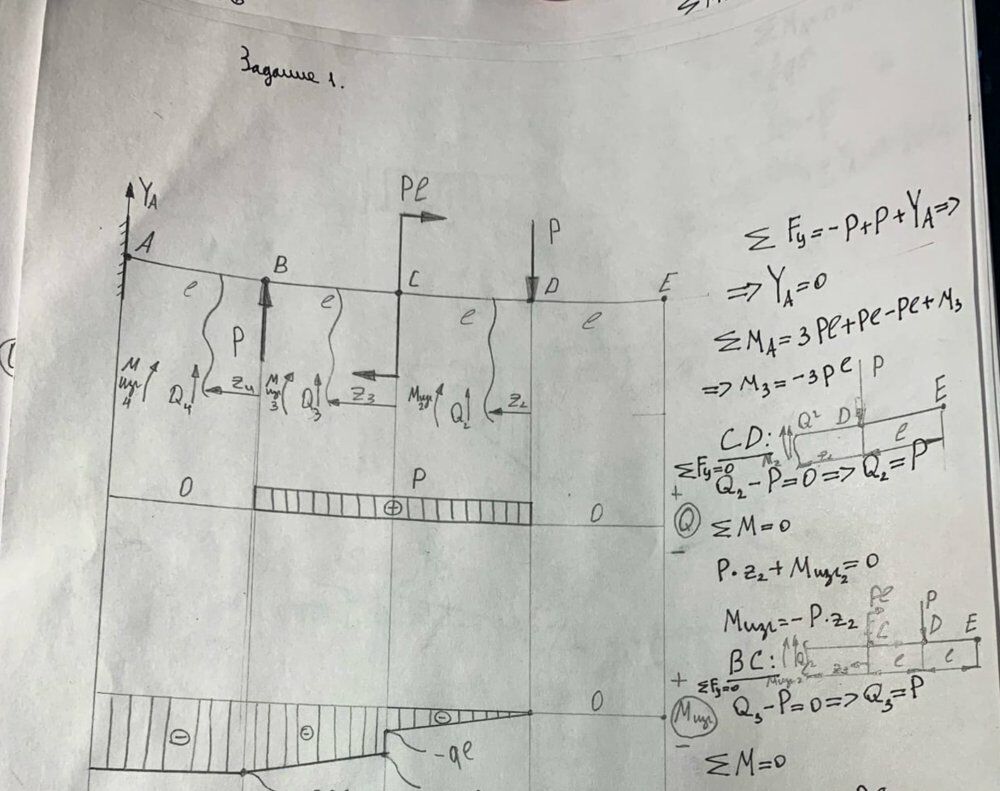 Задание 1.
Y_A
Pℓ
P
A
B
C
D
E
ℓ
ℓ
ℓ
ℓ
P
M изг 4
Q_4
z_4
M изг 3
Q_3
z_3
M изг 2
Q_2
z_2
0
P
⊕
0
+
Q
-
⊖
⊖
⊖
0
-qℓ
+
M изг
-
Σ F_y = -P+P+Y_A =>
=> Y_A = 0
Σ M_A = 3Pℓ+Pℓ-Pℓ+M_3
=> M_3 = -3Pℓ
P
E
CD:
Q^2
D
ℓ
M_2
z_2
ΣF_y=0
Q_2-P=0 => Q_2=P
ΣM=0
P·z_2+M изг_2=0
M изг=-P·z_2
Pℓ
P
C
D
E
BC:
ℓ
ℓ
ΣF_y=0
Q_3-P=0 => Q_3=P
ΣM=0